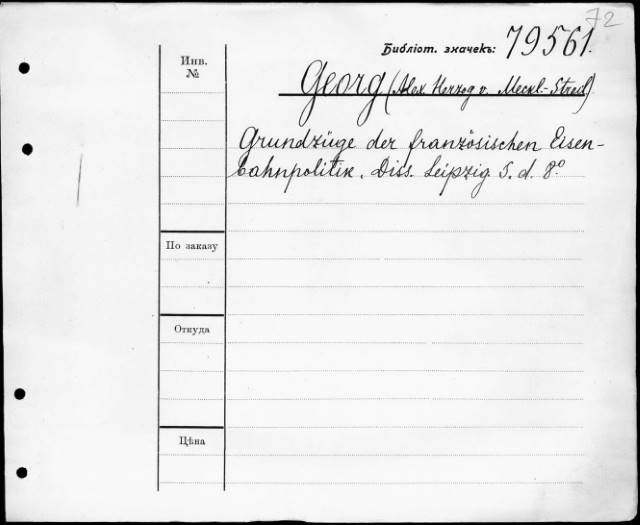 72
Библіот. значекъ: 79561.
Инв.
№
Georg (Alex Herzog v. Meckl.-Strel)
Grundzüge der französischen Eisen-
bahnpolitik. Diss. Leipzig S. d. 8º
По заказу
Откуда
Цѣна